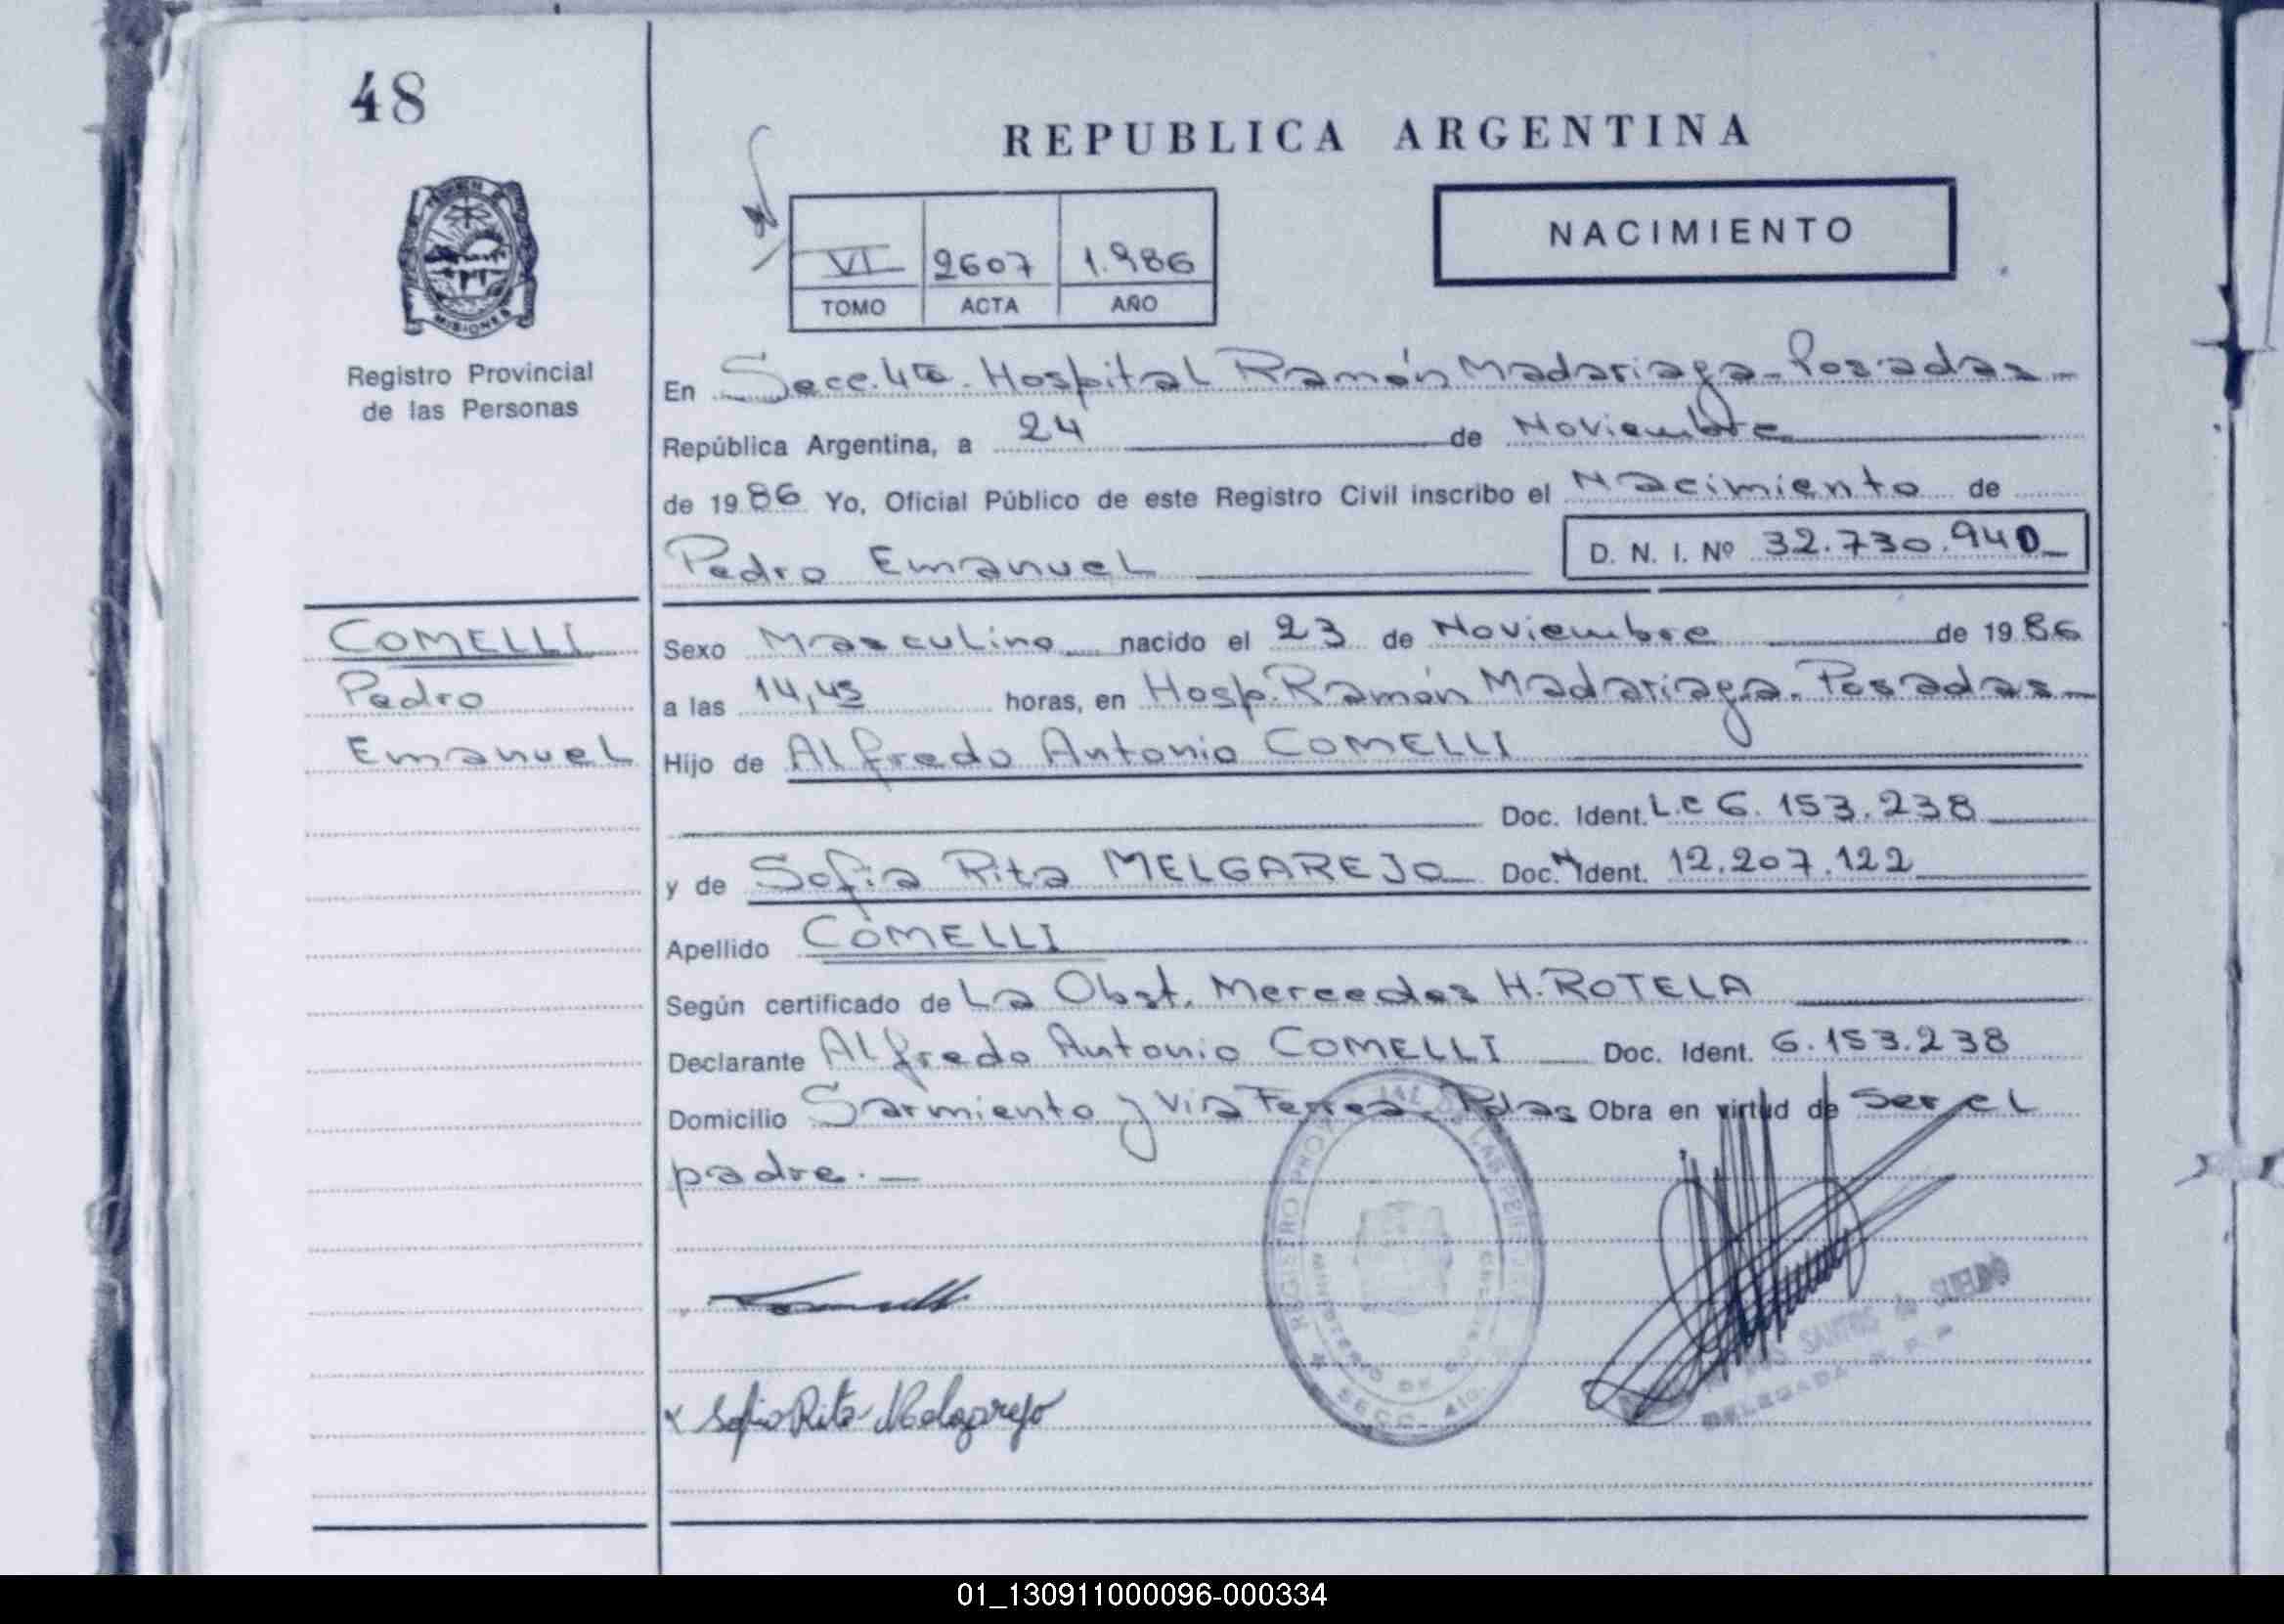 48
REPUBLICA ARGENTINA
NACIMIENTO
VI 2607 1.986
TOMO ACTA AÑO
MISIONES
Registro Provincial
de las Personas
En Secc. 4ta. Hospital Ramón Madariaga - Posadas -
República Argentina, a 24 de Noviembre
de 1986 Yo, Oficial Público de este Registro Civil inscribo el Nacimiento de
Pedro Emanuel D. N. I. Nº 32.730.940
COMELLI
Pedro
Emanuel
Sexo Masculino nacido el 23 de Noviembre de 1986
a las 14,45 horas, en Hosp. Ramón Madariaga - Posadas -
Hijo de Alfredo Antonio COMELLI
Doc. Ident. L.E 6.153.238
y de Sofia Rita MELGAREJO Doc. Ident. 12.207.122
Apellido COMELLI
Según certificado de La Obst. Mercedes H. ROTELA
Declarante Alfredo Antonio COMELLI Doc. Ident. 6.153.238
Domicilio Sarmiento y Via Ferrea - Pdas Obra en virtud de ser el
padre. -
REGISTRO
SECC.
SANTOS de SUELDO
DELEGADA
Sofia Rita Melgarejo
01_130911000096-000334